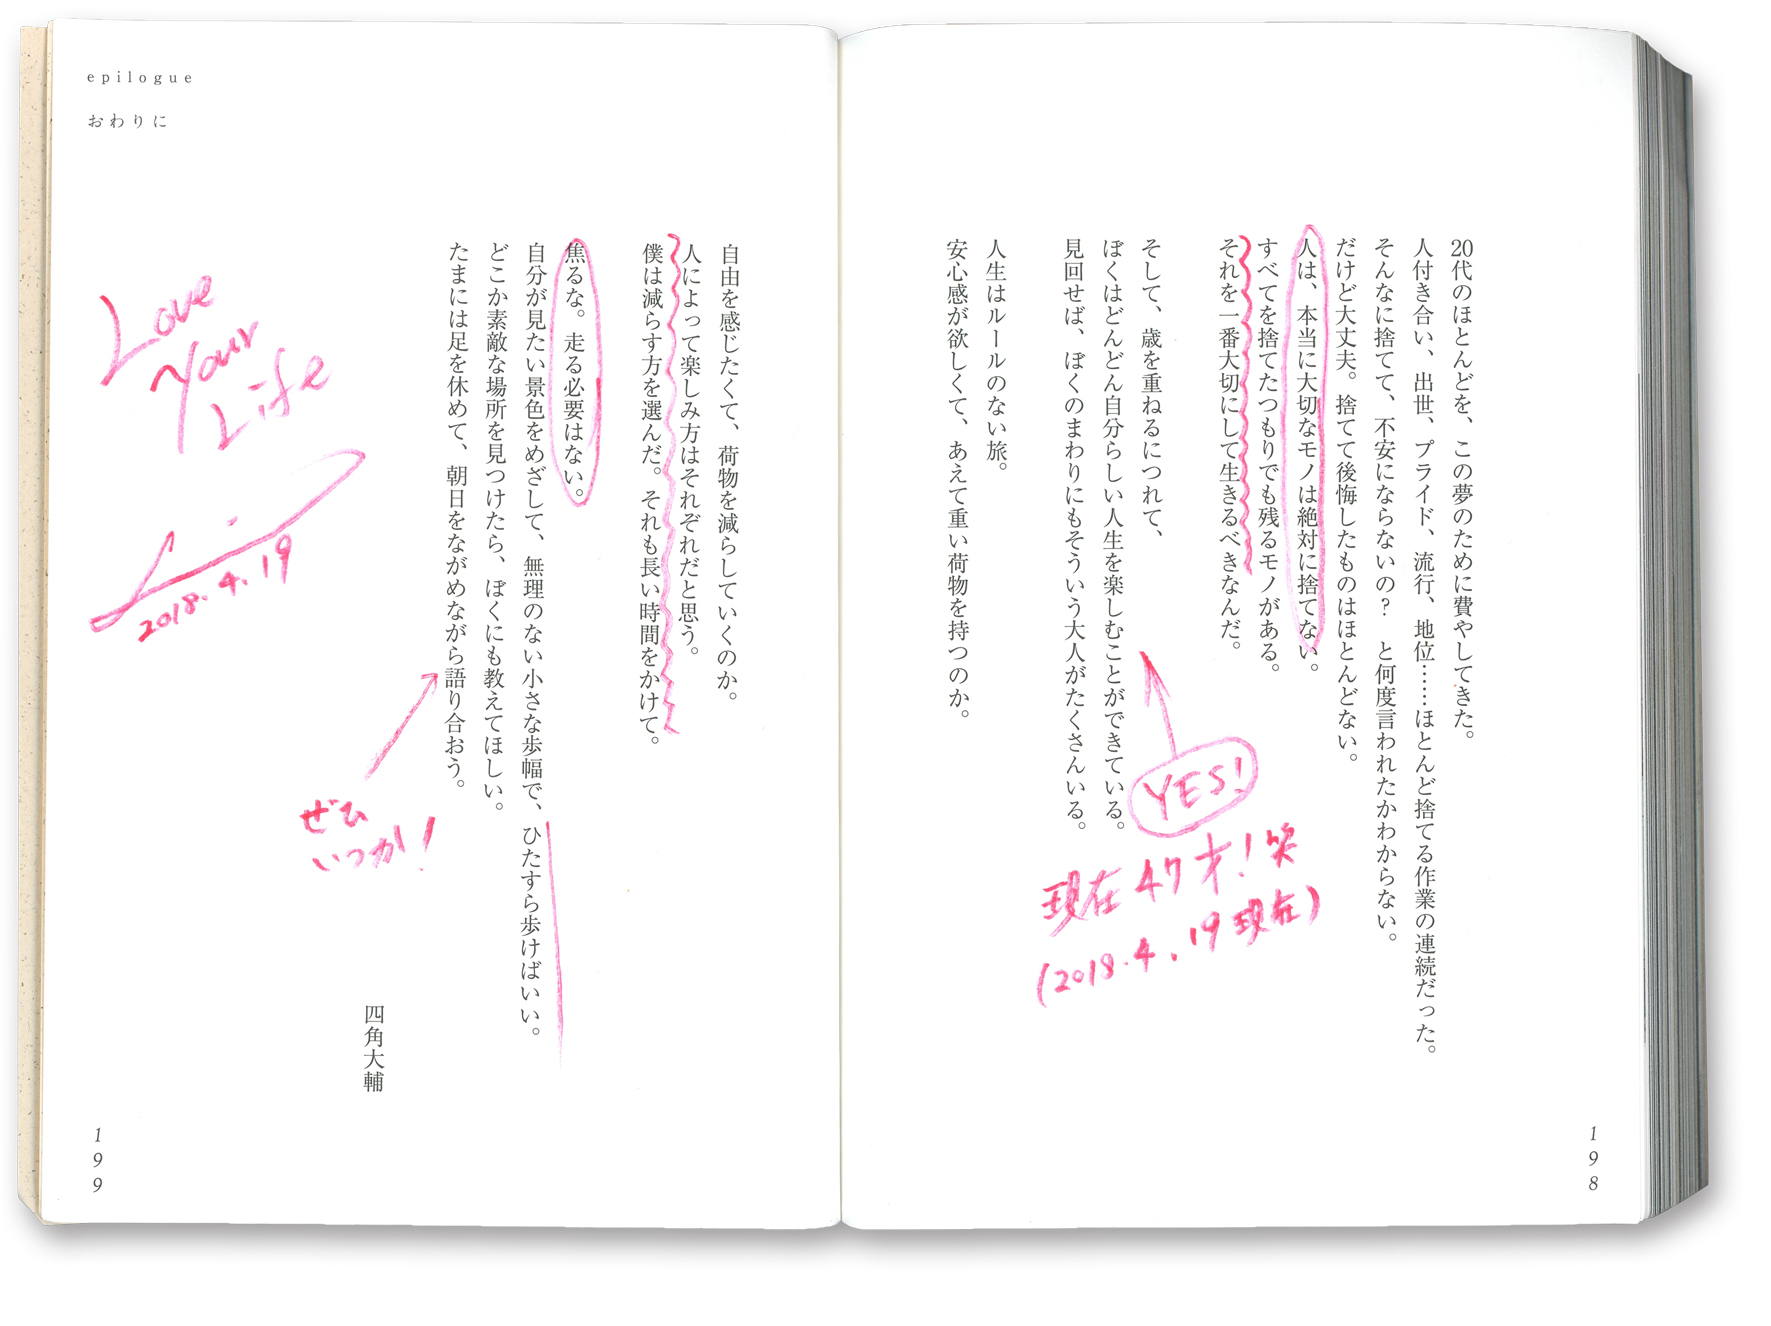 20代のほとんどを、この夢のために費やしてきた。
人付き合い、出世、プライド、流行、地位……ほとんど捨てる作業の連続だった。
そんなに捨てて、不安にならないの？　と何度言われたかわからない。
だけど大丈夫。捨てて後悔したものはほとんどない。
人は、本当に大切なモノは絶対に捨てない。
すべてを捨てたつもりでも残るモノがある。
それを一番大切にして生きるべきなんだ。
そして、歳を重ねるにつれて、
ぼくはどんどん自分らしい人生を楽しむことができている。
見回せば、ぼくのまわりにもそういう大人がたくさんいる。
YES!
現在47才！笑
(2018.4.19現在)
人生はルールのない旅。
安心感が欲しくて、あえて重い荷物を持つのか。
198
epilogue
おわりに
自由を感じたくて、荷物を減らしていくのか。
人によって楽しみ方はそれぞれだと思う。
僕は減らす方を選んだ。それも長い時間をかけて。
焦るな。走る必要はない。
自分が見たい景色をめざして、無理のない小さな歩幅で、ひたすら歩けばいい。
どこか素敵な場所を見つけたら、ぼくにも教えてほしい。
たまには足を休めて、朝日をながめながら語り合おう。
ぜひ
いつか！
四角大輔
Love
Your
Life
2018.4.19
199